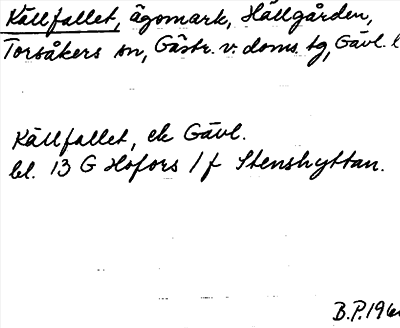 Källfallet, ägomark, Hällgården,
Torsåkers sn, Gästr. v. doms. tg, Gävl. l
Källfallet, ek Gävl.
bl. 13 G Hofors / f Stenshyttan.
B.P. 196